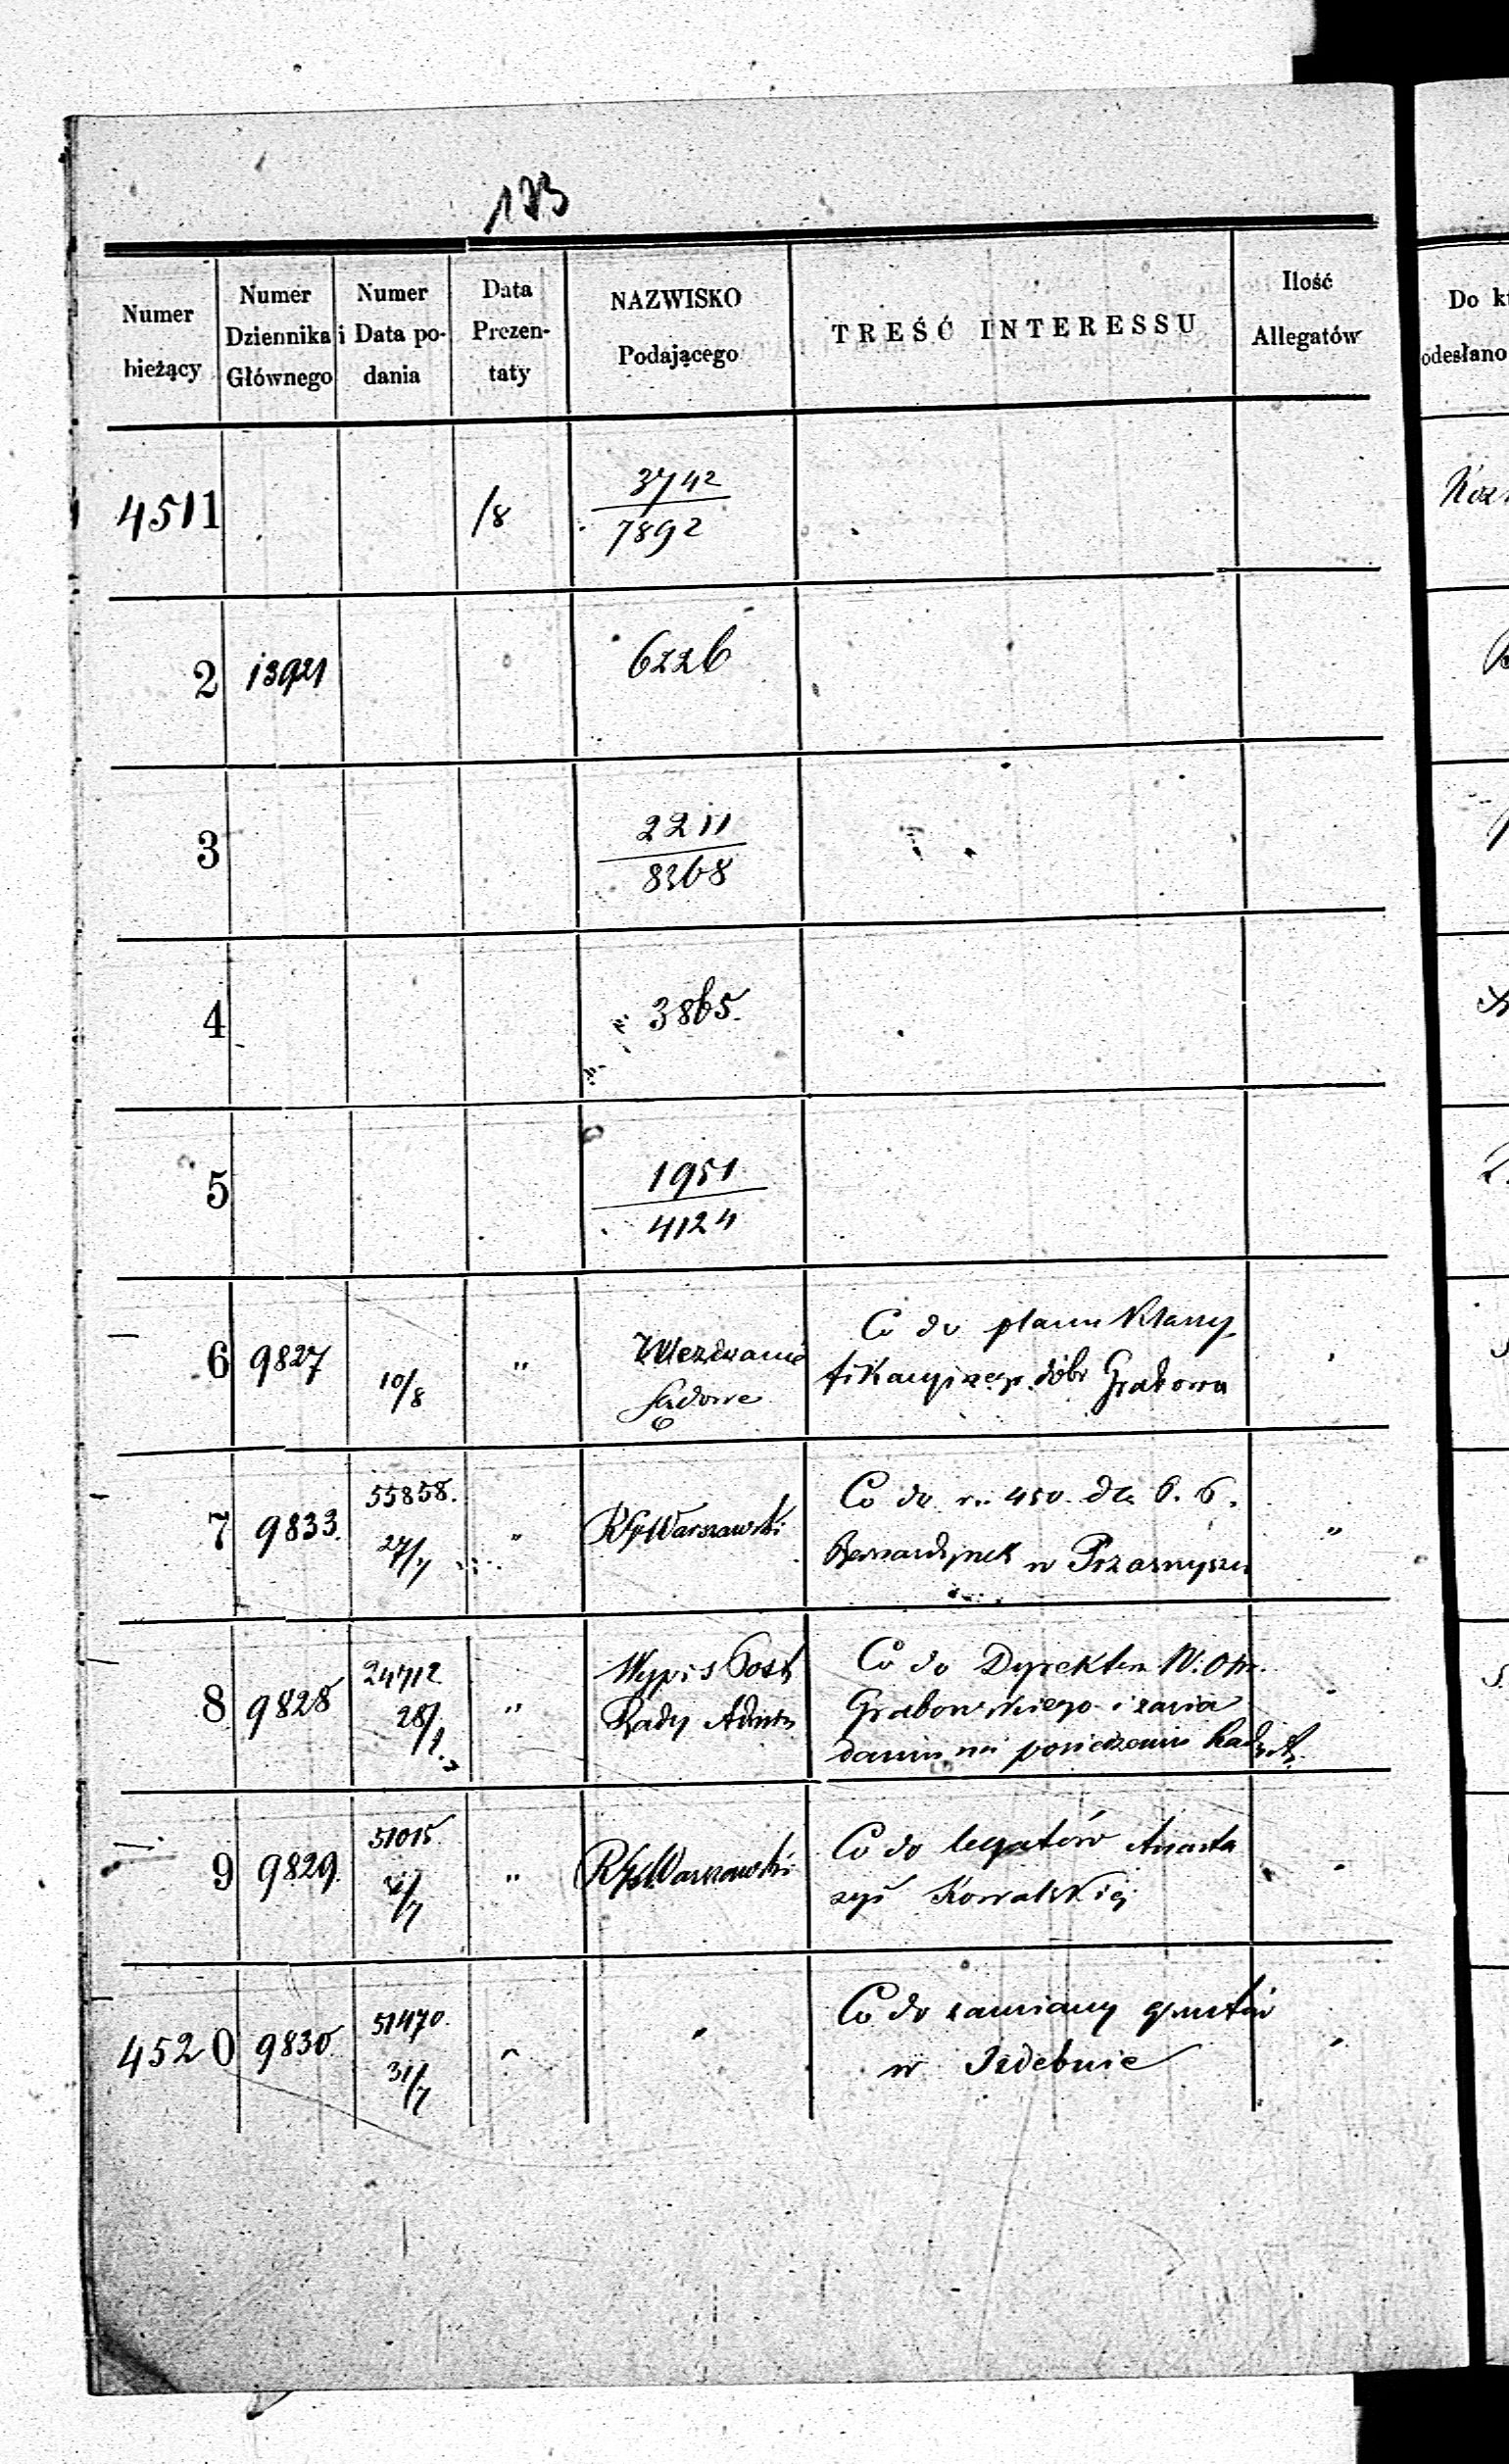 Numer bieżący
Numer Dziennika Głównego
Numer i Data podania
Data Prezen-taty
NAZWISKO Podającego
TREŚĆ INTERESSU
Ilość Allegatów
Do
odesłano
4511
/8
3742
7892
2
13921
6226
3
2211
8368
4
3865
5
1951
4124
6
9827
10/8
"
Wezwanie
Sądowe
Co do planu Klassy
fikacyjnego dóbr Grabowa
7
9833
55858
27/7
"
Warszawski
Co do 450 dla
Bernardynek w Przasnyszu
"
8
9828
24712
28/
"
Wypis
Rady
Co do Dyrektora
Grabowskiego i zasia
dania na posiedzeniu
9
9829
51015
/7
"
Warszawski
Co do legatów Anasta
zyi Kowalskiej
4520
9830
51470
31/7
"
"
Co do zamiany gruntów
w Izdebnie
"